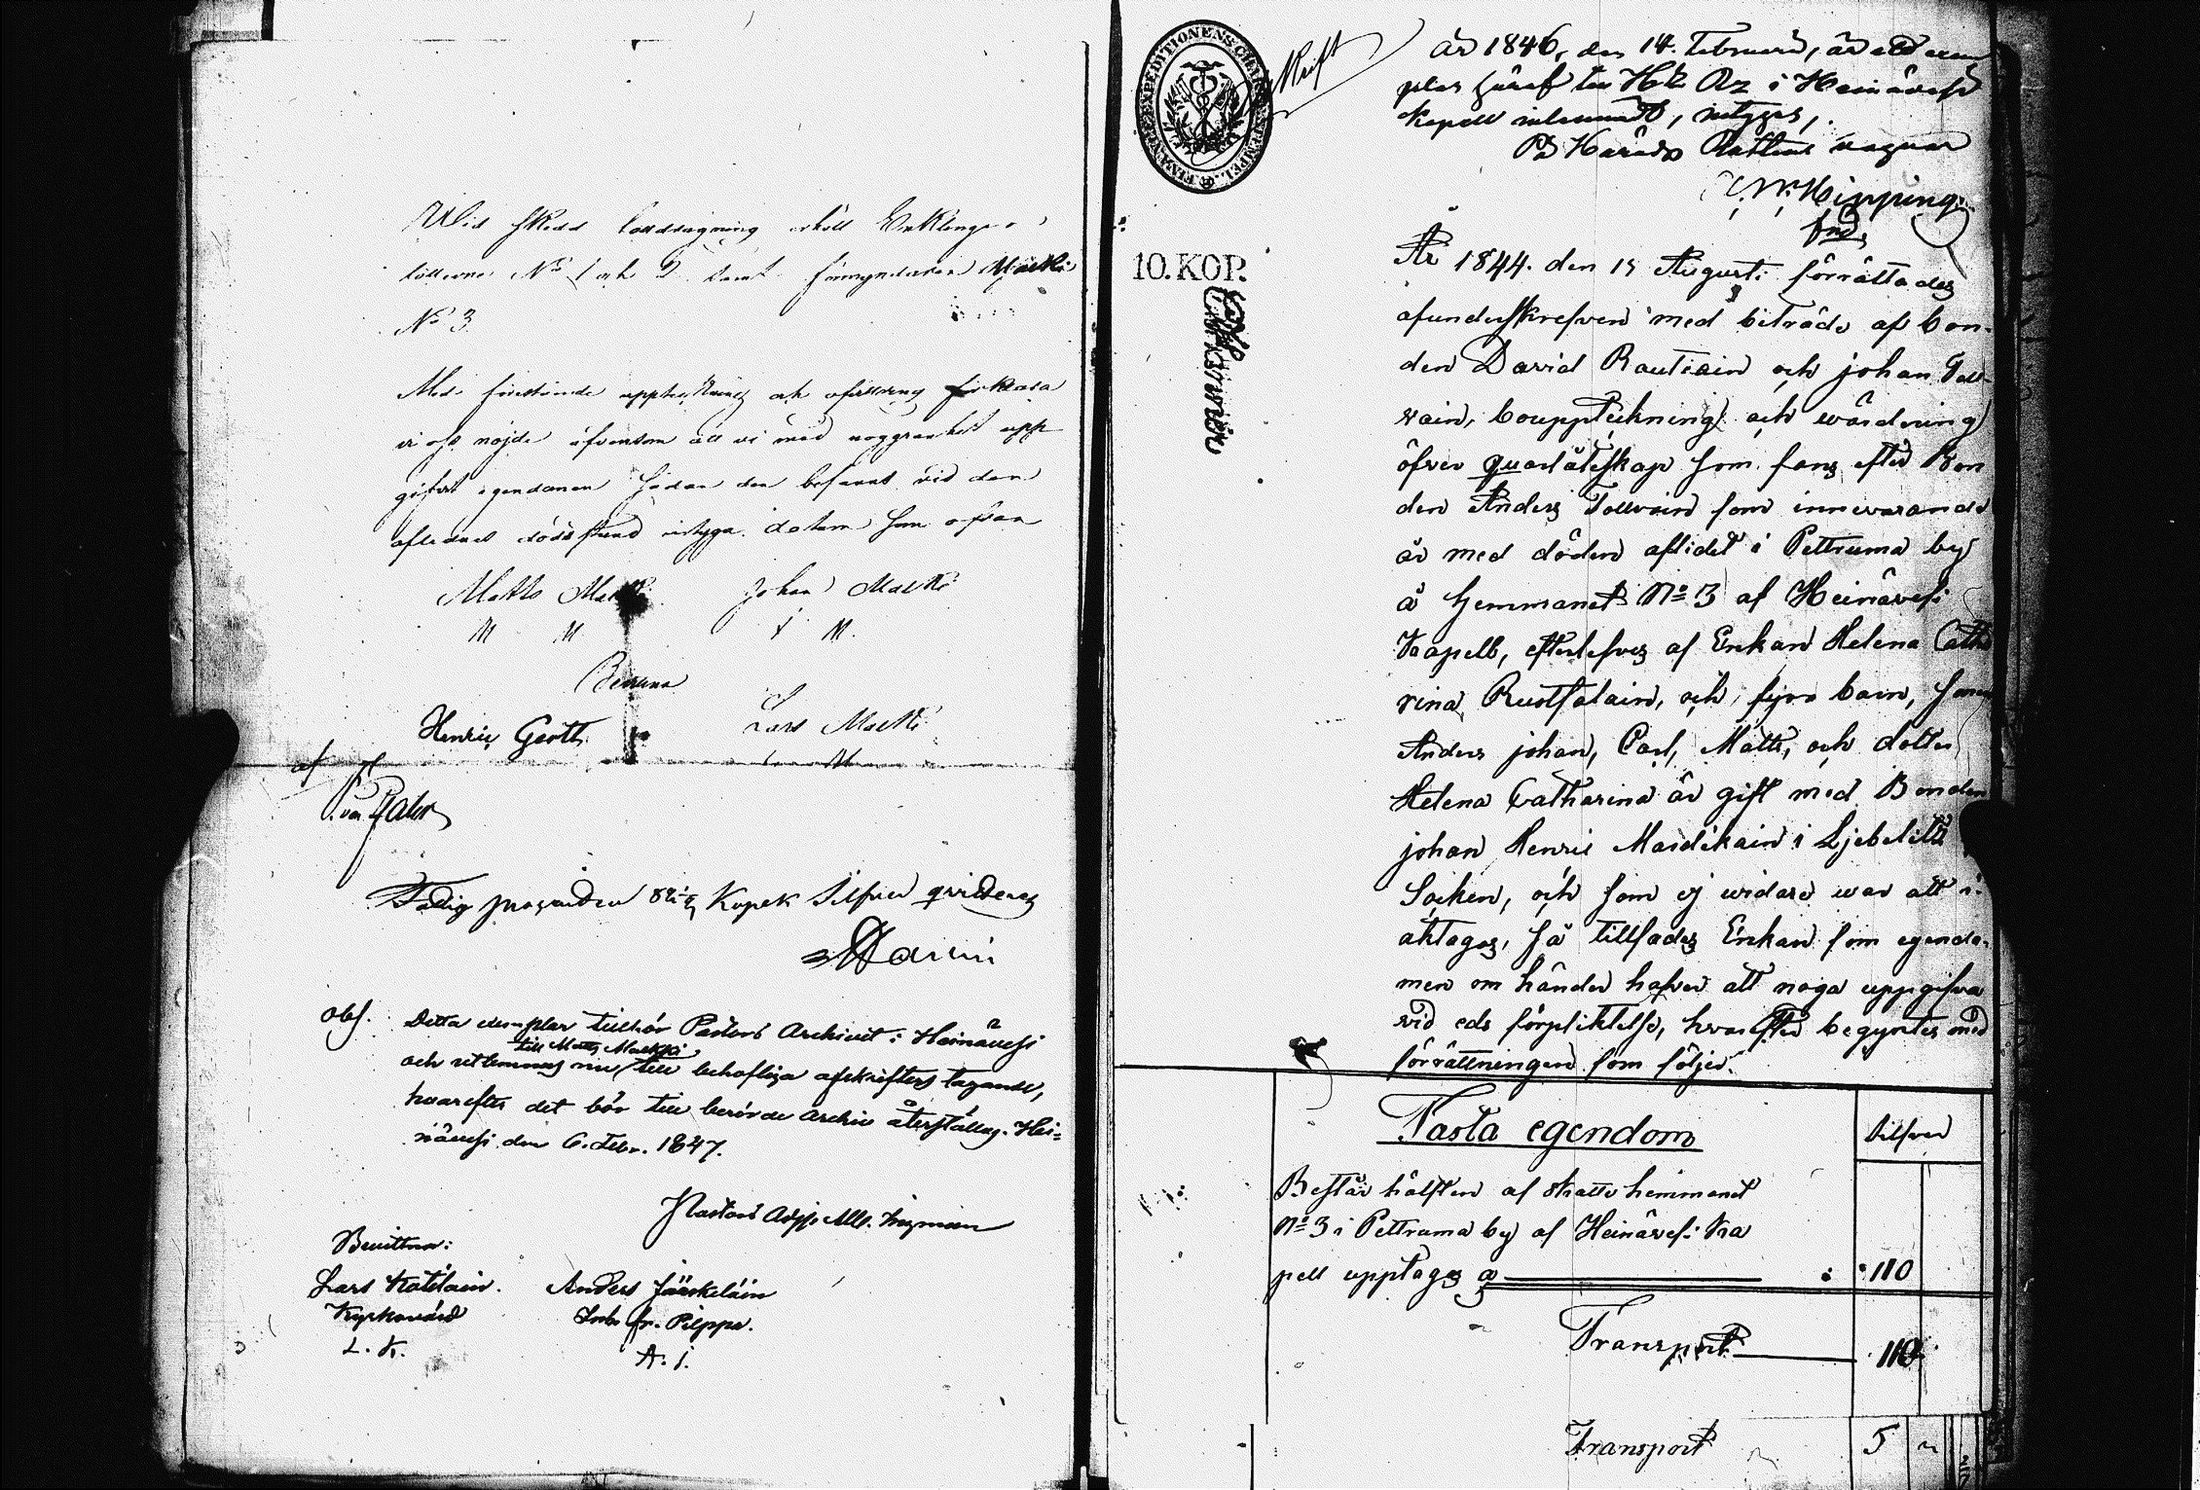 Wid skedd lottdragning erhöll Enklingen
lotterne No 1 och 2 samt förmyndaren Matti
No 3.
Med förestående uppteckning och afvittring förklara
vi oss nöjde äfvensom att vi med noggranhet upp
gifvit egendomen sådan den befanns vid den
aflednes dödsstund intyga. datum som ofvan
Matts Johan
M M J M.
Bevittna
Henric Lars
M
af
Fattig procenten 82½ Kopek Silfver qvitteras
obs. Detta exemplar tillhör Pastors Archivet i Heinävesi
till Matts
och utlemnas nu till behöfliga afskrifters tagande,
hvarefter det bör till berörde archiv återställas. Hei=
nävesi den 6. Febr. 1847.
Pastors Adj.
Bevittna:
Lars Anders Jääskeläin
Kyrkovärd
L. K. A. j.
FINANCE EXPEDITIONENS CHARTÆ STEMPEL
10. KOP.
År 1846, den 14. Februari, är ett exem
plar häraf till i Heinävesi
Kapell inlemnadt, intygas,
På Härads Rättens vägnar
Hipping.
År 1844. den 15 Augusti förrättades
afunderskrefven med biträde af bon-
den David Rautiain och johan Toll-
vain, bouppteckning och wärdering
öfver quarlåtskap som fans efter Bon
den Anders Tollvain som innevarande
år med döden aflidet i Pettruma by
å hemmanet No 3 af Heinävesi
Kapell, efterlefves af Enkan Helena Catha
rina och fyra barn, söner
Anders johan, Carl, Matts, och dotter
Helena Catharina är gift med Bonden
johan Henric i Ljebelitz
Socken, och som ej widare war att i
akttagas, så tillsades Enkan som egendo-
men om händer hafver att noga uppgifva
vid eds förpliktelse, hvarefter begyntes med
förrättningen som följer.
Fasta egendom Silfver
Består hälften af skatte hemmanet
No 3 i Pettruma by af Heinävesi Ka
pell upptages a 110
Transport 110
Transport 5